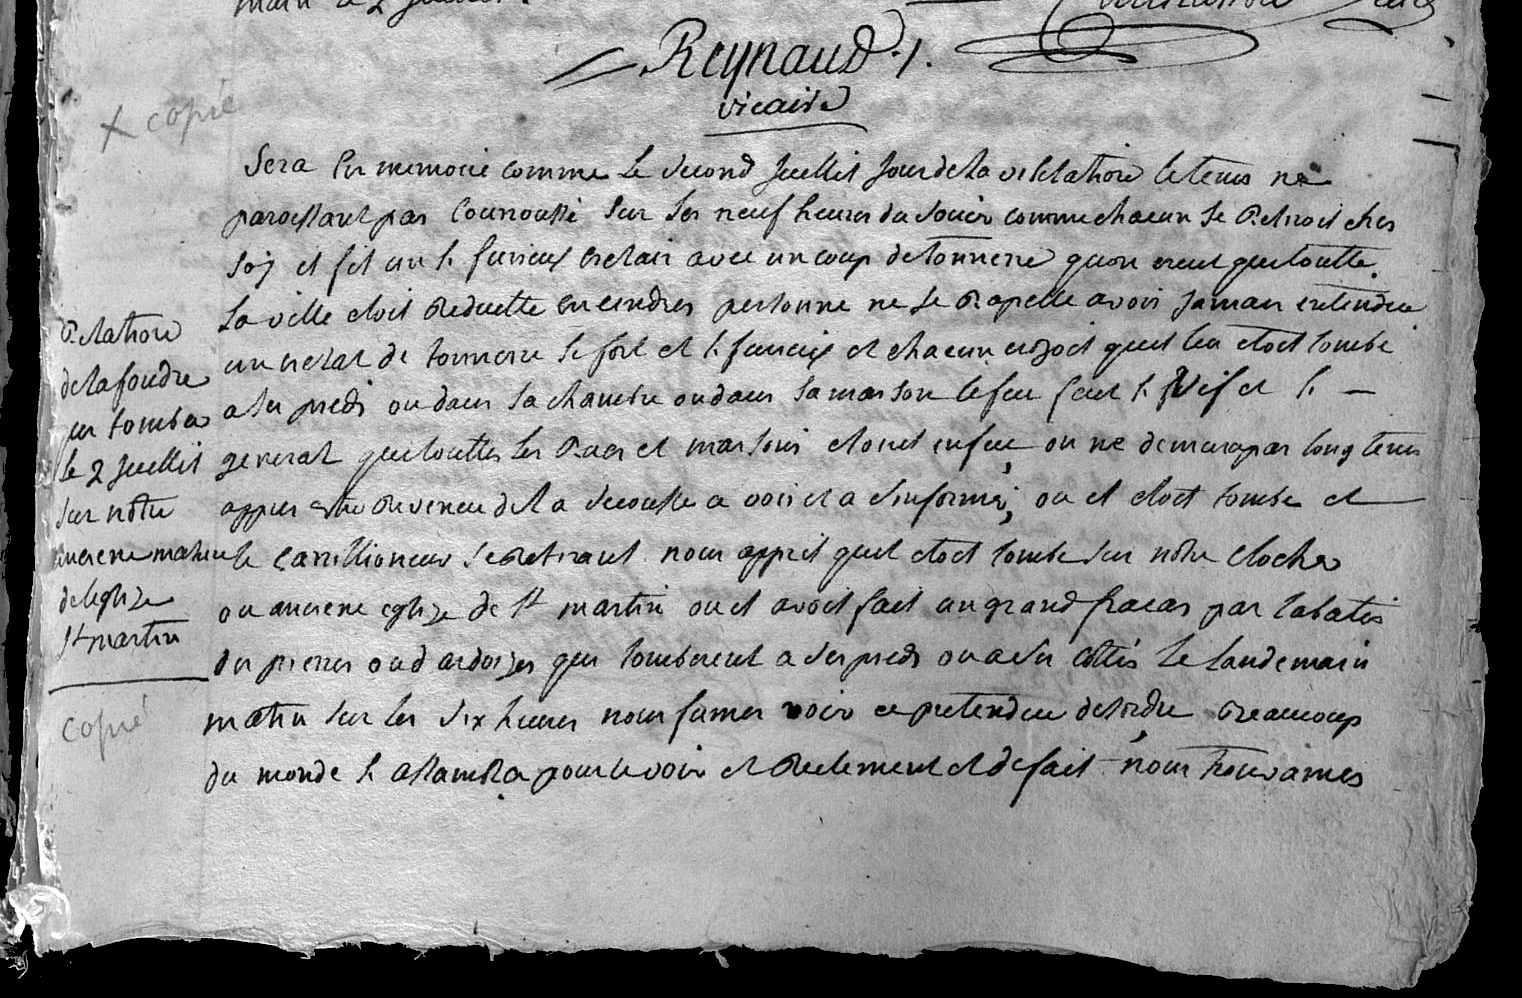 main le 2 juillet.
Reynaud
vicaire
x copié
Sera en memoire comme le second juellit jour de la visitation le tems ne
paroissant pas couroussé sur les neuf heures du soir comme chacun se retiroit ches
soy il fit un si furieux esclair avec un coup de tonnerre quon creut que toutte
la ville etoit reduitte en cendres personne ne se rapelle avoir jamais entendeu
un esclat de tonnerre si fort et si furieux et chacun croyoit quil leu etoit tombé
a ses pieds ou dans sa chambre ou dans sa maison le feu feut si vif et si
general que touttes les rues et maisons etoint en feu on ne demeura pas long tems
appres etre reveneu de la secousse a voir et a s'informer, ou il etoit tombé et
le carillioneur se retirant nous apprit quil etoit tombé sur notre clocher
ou anciene eglize de st martin ou il avoit fait un grand fracas par l'abatis
des pierres ou d'ardoizes qui tomberent a ses pieds ou a ses cottés le landemain
matin sur les six heures nous fumes voir ce pretendeu desordre beaucoup
du monde s'assambla pour le voir et reelement et de fait nous trouvames
Relation
de la foudre
qui tomba
le 2 juellit
sur notre
anciene mature
de leglize
st martin
copié